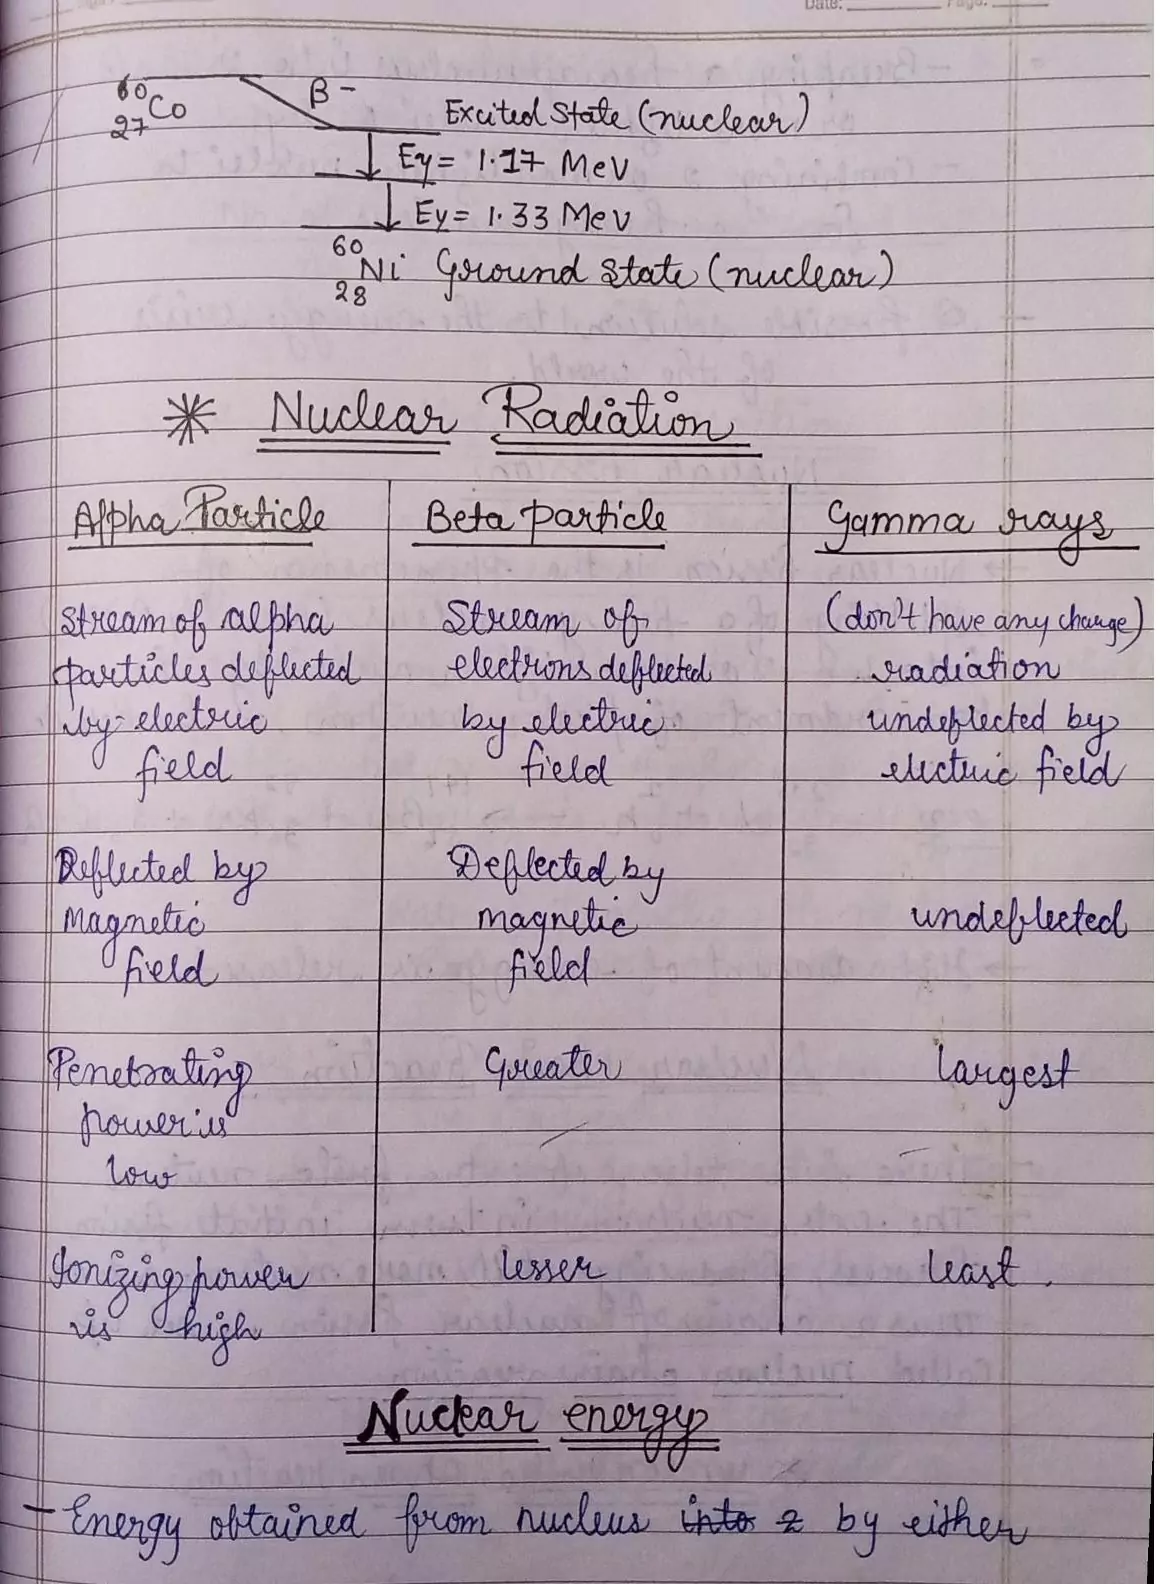 Date: Page:
60
27 Co β- Excited State (nuclear)
Eγ = 1.17 MeV
Eγ = 1.33 MeV
60
28 Ni Ground State (nuclear)
* Nuclear Radiation
Alpha Particle Beta particle Gamma rays
Stream of alpha Stream of (don't have any charge)
particles deflected electrons deflected radiation
by electric by electric undeflected by
field field electric field
Deflected by Deflected by
magnetic magnetic undeflected
field field.
Penetrating Greater largest
power is
low
Ionizing power lesser least.
is high
Nuclear energy
- Energy obtained from nucleus into 2 by either